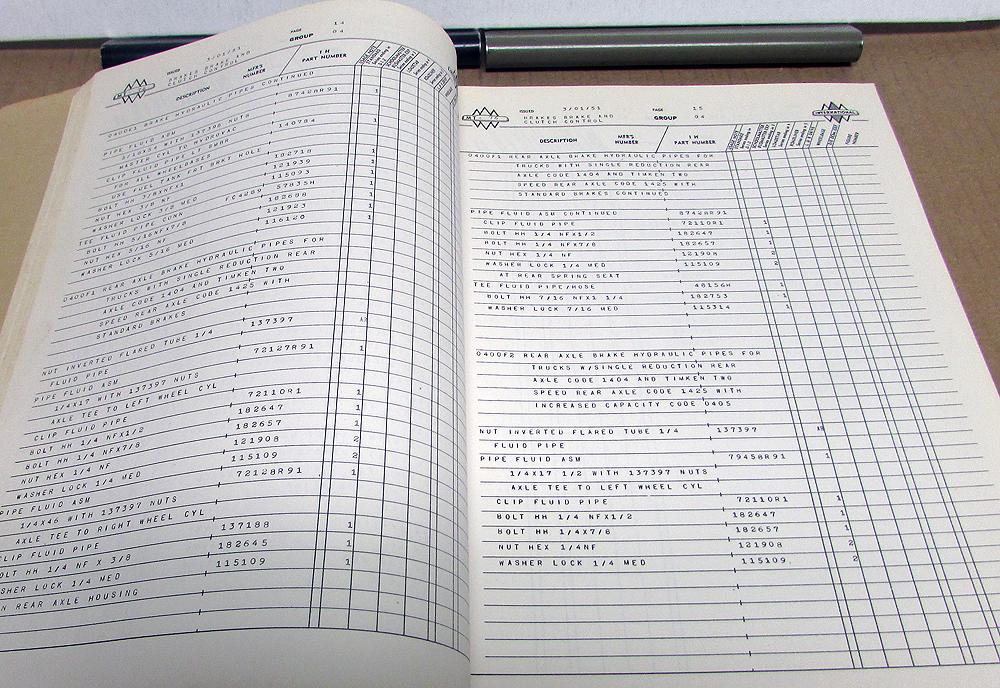 PAGE 14
ISSUED 3/01/51 GROUP 04
BRAKES BRAKE AND
CLUTCH CONTROL
DESCRIPTION MFR'S NUMBER I H PART NUMBER
0400E1 BRAKE HYDRAULIC PIPES CONTINUED
87428R91 1
PIPE FLUID ASM
WITH 137398 NUTS
CYL TO HYDROVAC
CLIP FLUID PIPE 140784
FOR ALL WHEELBASES
USE FUEL TANK FRT BRKT HOLE
BOLT HH 3/8NFX1 182718 1
NUT HEX 3/8 NF 121939 1
WASHER LOCK 3/8 MED 115093 1
TEE FLUID PIPE CONN FC4289 57835H 1
BOLT HH 5/16NFX7/8 182688 1
NUT HEX 5/16 NF 121923 1
WASHER LOCK 5/16 MED 116120 1
0400F1 REAR AXLE BRAKE HYDRAULIC PIPES FOR
TRUCKS WITH SINGLE REDUCTION REAR
AXLE CODE 1404 AND TIMKEN TWO
SPEED REAR AXLE CODE 1425 WITH
STANDARD BRAKES
NUT INVERTED FLARED TUBE 1/4 137397 AR
FLUID PIPE
PIPE FLUID ASM 72127R91 1
1/4X17 WITH 137397 NUTS
AXLE TEE TO LEFT WHEEL CYL
CLIP FLUID PIPE 72110R1 1
BOLT HH 1/4 NFX1/2 182647 1
BOLT HH 1/4 NFX7/8 182657 1
NUT HEX 1/4 NF 121908 2
WASHER LOCK 1/4 MED 115109 2
PIPE FLUID ASM 72128R91 1
1/4X46 WITH 137397 NUTS
AXLE TEE TO RIGHT WHEEL CYL
CLIP FLUID PIPE 137188 1
BOLT HH 1/4 NF X 3/8 182645 1
WASHER LOCK 1/4 MED 115109 1
REAR AXLE HOUSING
ISSUED 3/01/51 PAGE 15
BRAKES BRAKE AND GROUP 04
CLUTCH CONTROL
INTERNATIONAL
DESCRIPTION MFR'S NUMBER I H PART NUMBER
0400F1 REAR AXLE BRAKE HYDRAULIC PIPES FOR
TRUCKS WITH SINGLE REDUCTION REAR
AXLE CODE 1404 AND TIMKEN TWO
SPEED REAR AXLE CODE 1425 WITH
STANDARD BRAKES CONTINUED
PIPE FLUID ASM CONTINUED 87428R91
CLIP FLUID PIPE 72110R1 1
BOLT HH 1/4 NFX1/2 182647 1
BOLT HH 1/4 NFX7/8 182657 1
NUT HEX 1/4 NF 121908 2
WASHER LOCK 1/4 MED 115109 2
AT REAR SPRING SEAT
TEE FLUID PIPE/HOSE 48156H 1
BOLT HH 7/16 NFX1 1/4 182753 1
WASHER LOCK 7/16 MED 115314 1
0400F2 REAR AXLE BRAKE HYDRAULIC PIPES FOR
TRUCKS W/SINGLE REDUCTION REAR
AXLE CODE 1404 AND TIMKEN TWO
SPEED REAR AXLE CODE 1425 WITH
INCREASED CAPACITY CODE 0405
NUT INVERTED FLARED TUBE 1/4 137397 AR
FLUID PIPE
PIPE FLUID ASM 79458R91 1
1/4X17 1/2 WITH 137397 NUTS
AXLE TEE TO LEFT WHEEL CYL
CLIP FLUID PIPE 72110R1 1
BOLT HH 1/4 NFX1/2 182647 1
BOLT HH 1/4X7/8 182657 1
NUT HEX 1/4NF 121908 2
WASHER LOCK 1/4 MED 115109 2